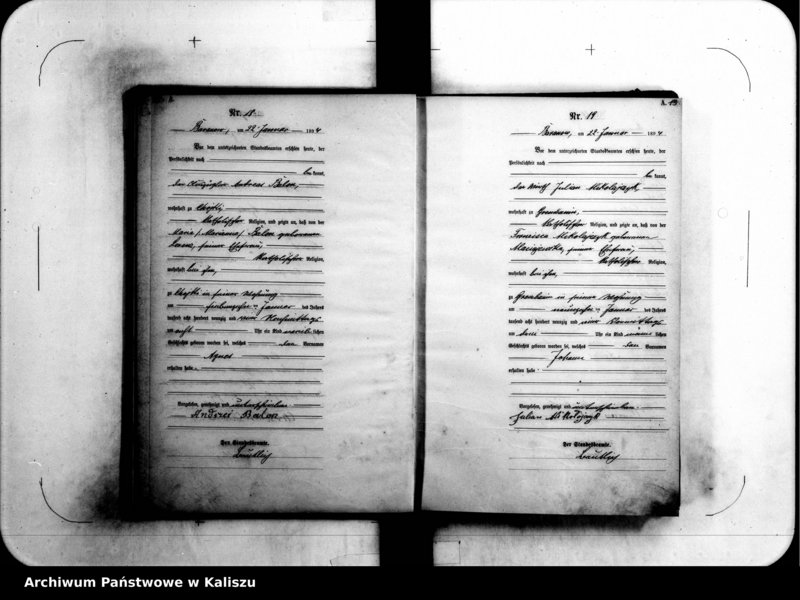 A.
Nr. 18
Baranow, am 22 Januar 1894
Vor dem unterzeichneten Standesbeamten erschien heute, der
Persönlichkeit nach
bekannt,
der Andreas Balon,
wohnhaft zu
katholischer Religion, und zeigte an, daß von der
Maria / Marianna / Balon geborenen
seiner Ehefrau,
katholischer Religion,
wohnhaft bei ihm,
zu in seiner Wohnung
am Januar des Jahres
tausend acht hundert neunzig und vier Nachmittags
um acht Uhr ein Kind weiblichen
Geschlechts geboren worden sei, welches den Vornamen
Agnes
erhalten habe.
Vorgelesen, genehmigt und unterschrieben
Andrzei Balon
Der Standesbeamte.
A. 19
Nr. 19
Baranow, am 22 Januar 1894
Vor dem unterzeichneten Standesbeamten erschien heute, der
Persönlichkeit nach
bekannt,
der Wirth Julian Mikolajczyk,
wohnhaft zu
katholischer Religion, und zeigte an, daß von der
Francisca Mikolajczyk geborenen
seiner Ehefrau,
katholischer Religion,
wohnhaft bei ihm,
zu in seiner Wohnung
am Januar des Jahres
tausend acht hundert neunzig und vier Vormittags
um Uhr ein Kind männlichen
Geschlechts geboren worden sei, welches den Vornamen
Johann
erhalten habe.
Vorgelesen, genehmigt und unterschrieben
Julian
Der Standesbeamte.
Archiwum Państwowe w Kaliszu